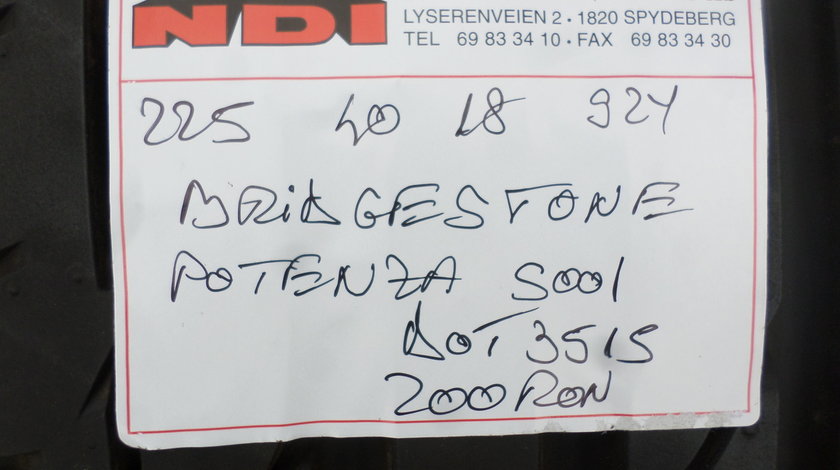 NDI
LYSERENVEIEN 2 • 1820 SPYDEBERG
TEL 69 83 34 10 • FAX 69 83 34 30
225 40 18 92Y
BRIDGESTONE
POTENZA S001
DOT 3515
200 RON